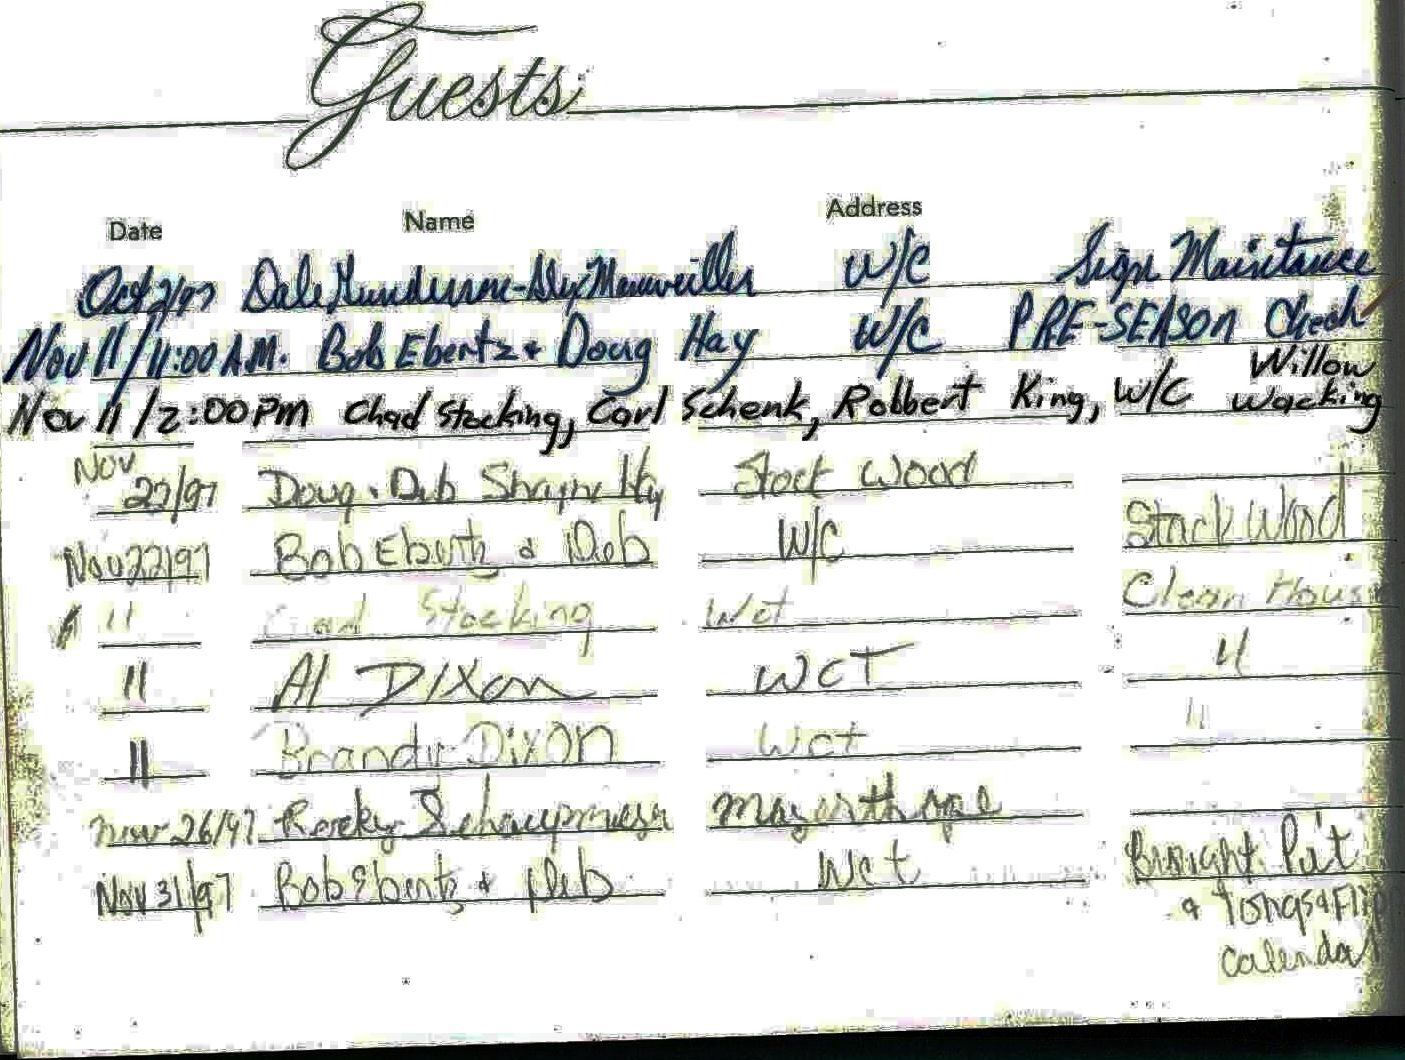 Guests
Date Name Address
Oct 2/97 Dale Gunderson - W/C Sign Maintance
Nov 11/11:00 A.M. Bob Ebertz + Doug Hay W/C PRE-SEASON Check
Nov 11/2:00 PM Chad Stocking, Carl Schenk, Robbert King, W/C Willow Wacking
Nov 22/97 Doug + Deb Shayne Hay Stock Wood
Nov 22/97 Bob Ebertz & Deb W/C Stack Wood
" Stocking Wct Clean House
" Al Dixon WCT "
" Brandy Dixon Wct "
Nov 26/97 Mayerthorpe
Nov 31/97 Bob Ebertz & Deb Wct Brought Pot
& Tongs & Flip
Calendar